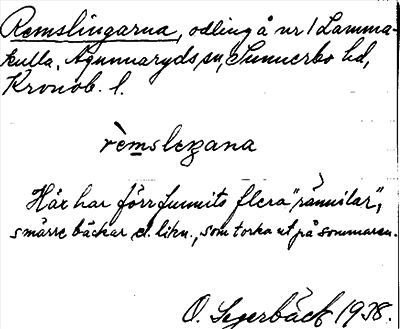 Remslingarna, odling å nr 1 Lamma-
kulla, Agunnaryds sn, Sunnerbo hd,
Kronob. l.
rèmslegana
Här har förr funnits flera "rännilar",
smärre bäckar el. likn., som torka ut på sommaren.
O. Segerbäck 1938.